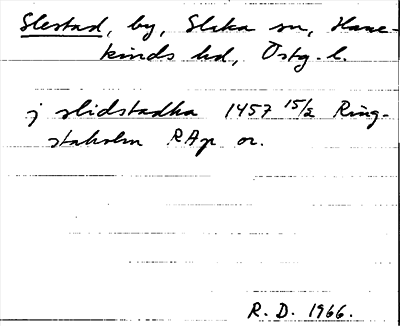 Slestad, by, Slaka sn, Hane-
kinds hd, Östg. l.
j slidstadha 1457 15/2 Ring-
staholm RAp or.
R. D. 1966.